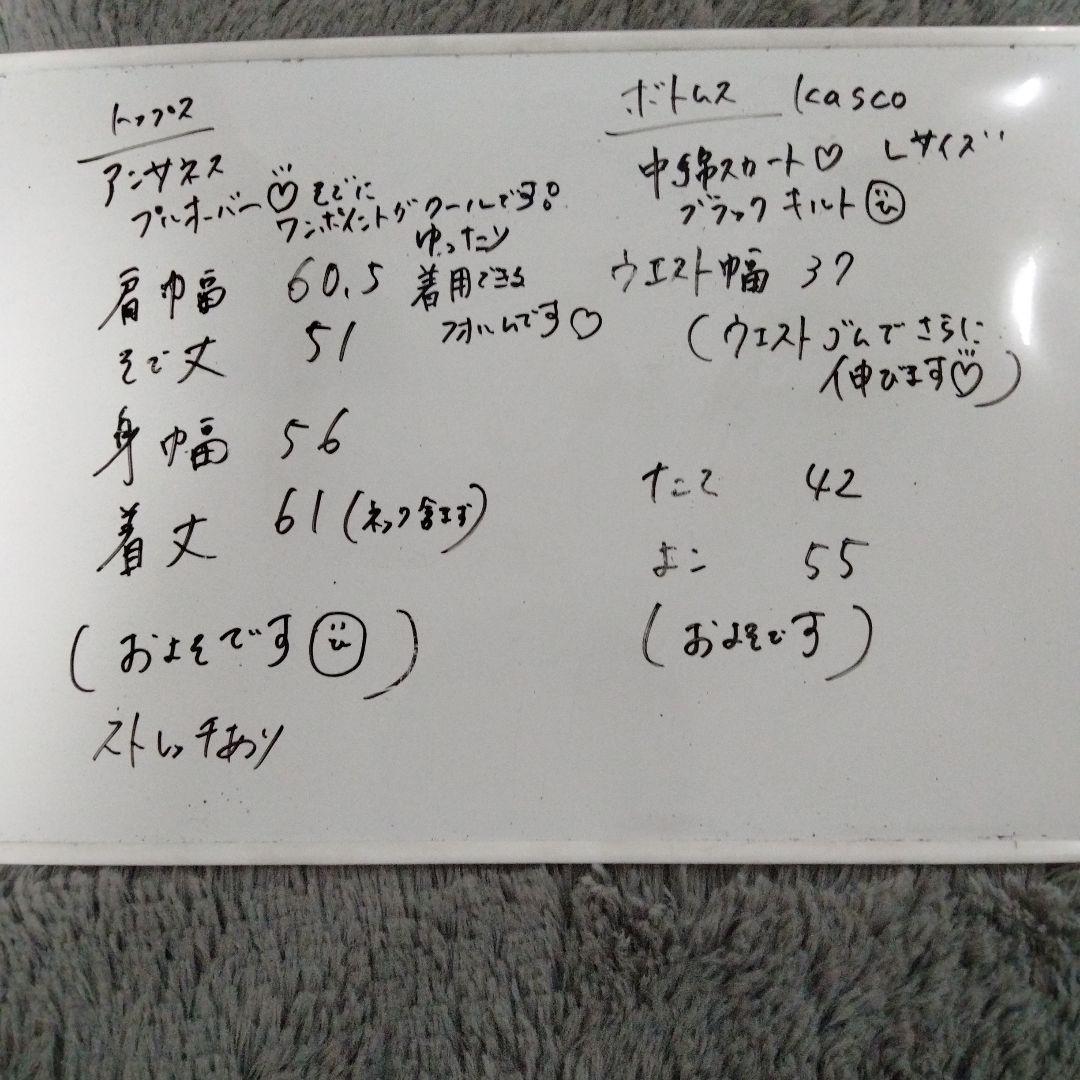 トップス
アンサネス
プルオーバー♡ そでに
ワンポイントがクールです!
ゆったり
着用できる
フォルムです♡
肩巾幅 60.5
そで丈 51
身巾幅 56
着丈 61 (ネック含まず)
(およそです)
ストレッチあり
ボトムス Kasco
中綿スカート♡ Lサイズ
ブラック キルト
ウエスト巾幅 37
(ウエストゴムでさらに
伸びます♡)
たて 42
よこ 55
(およそです)